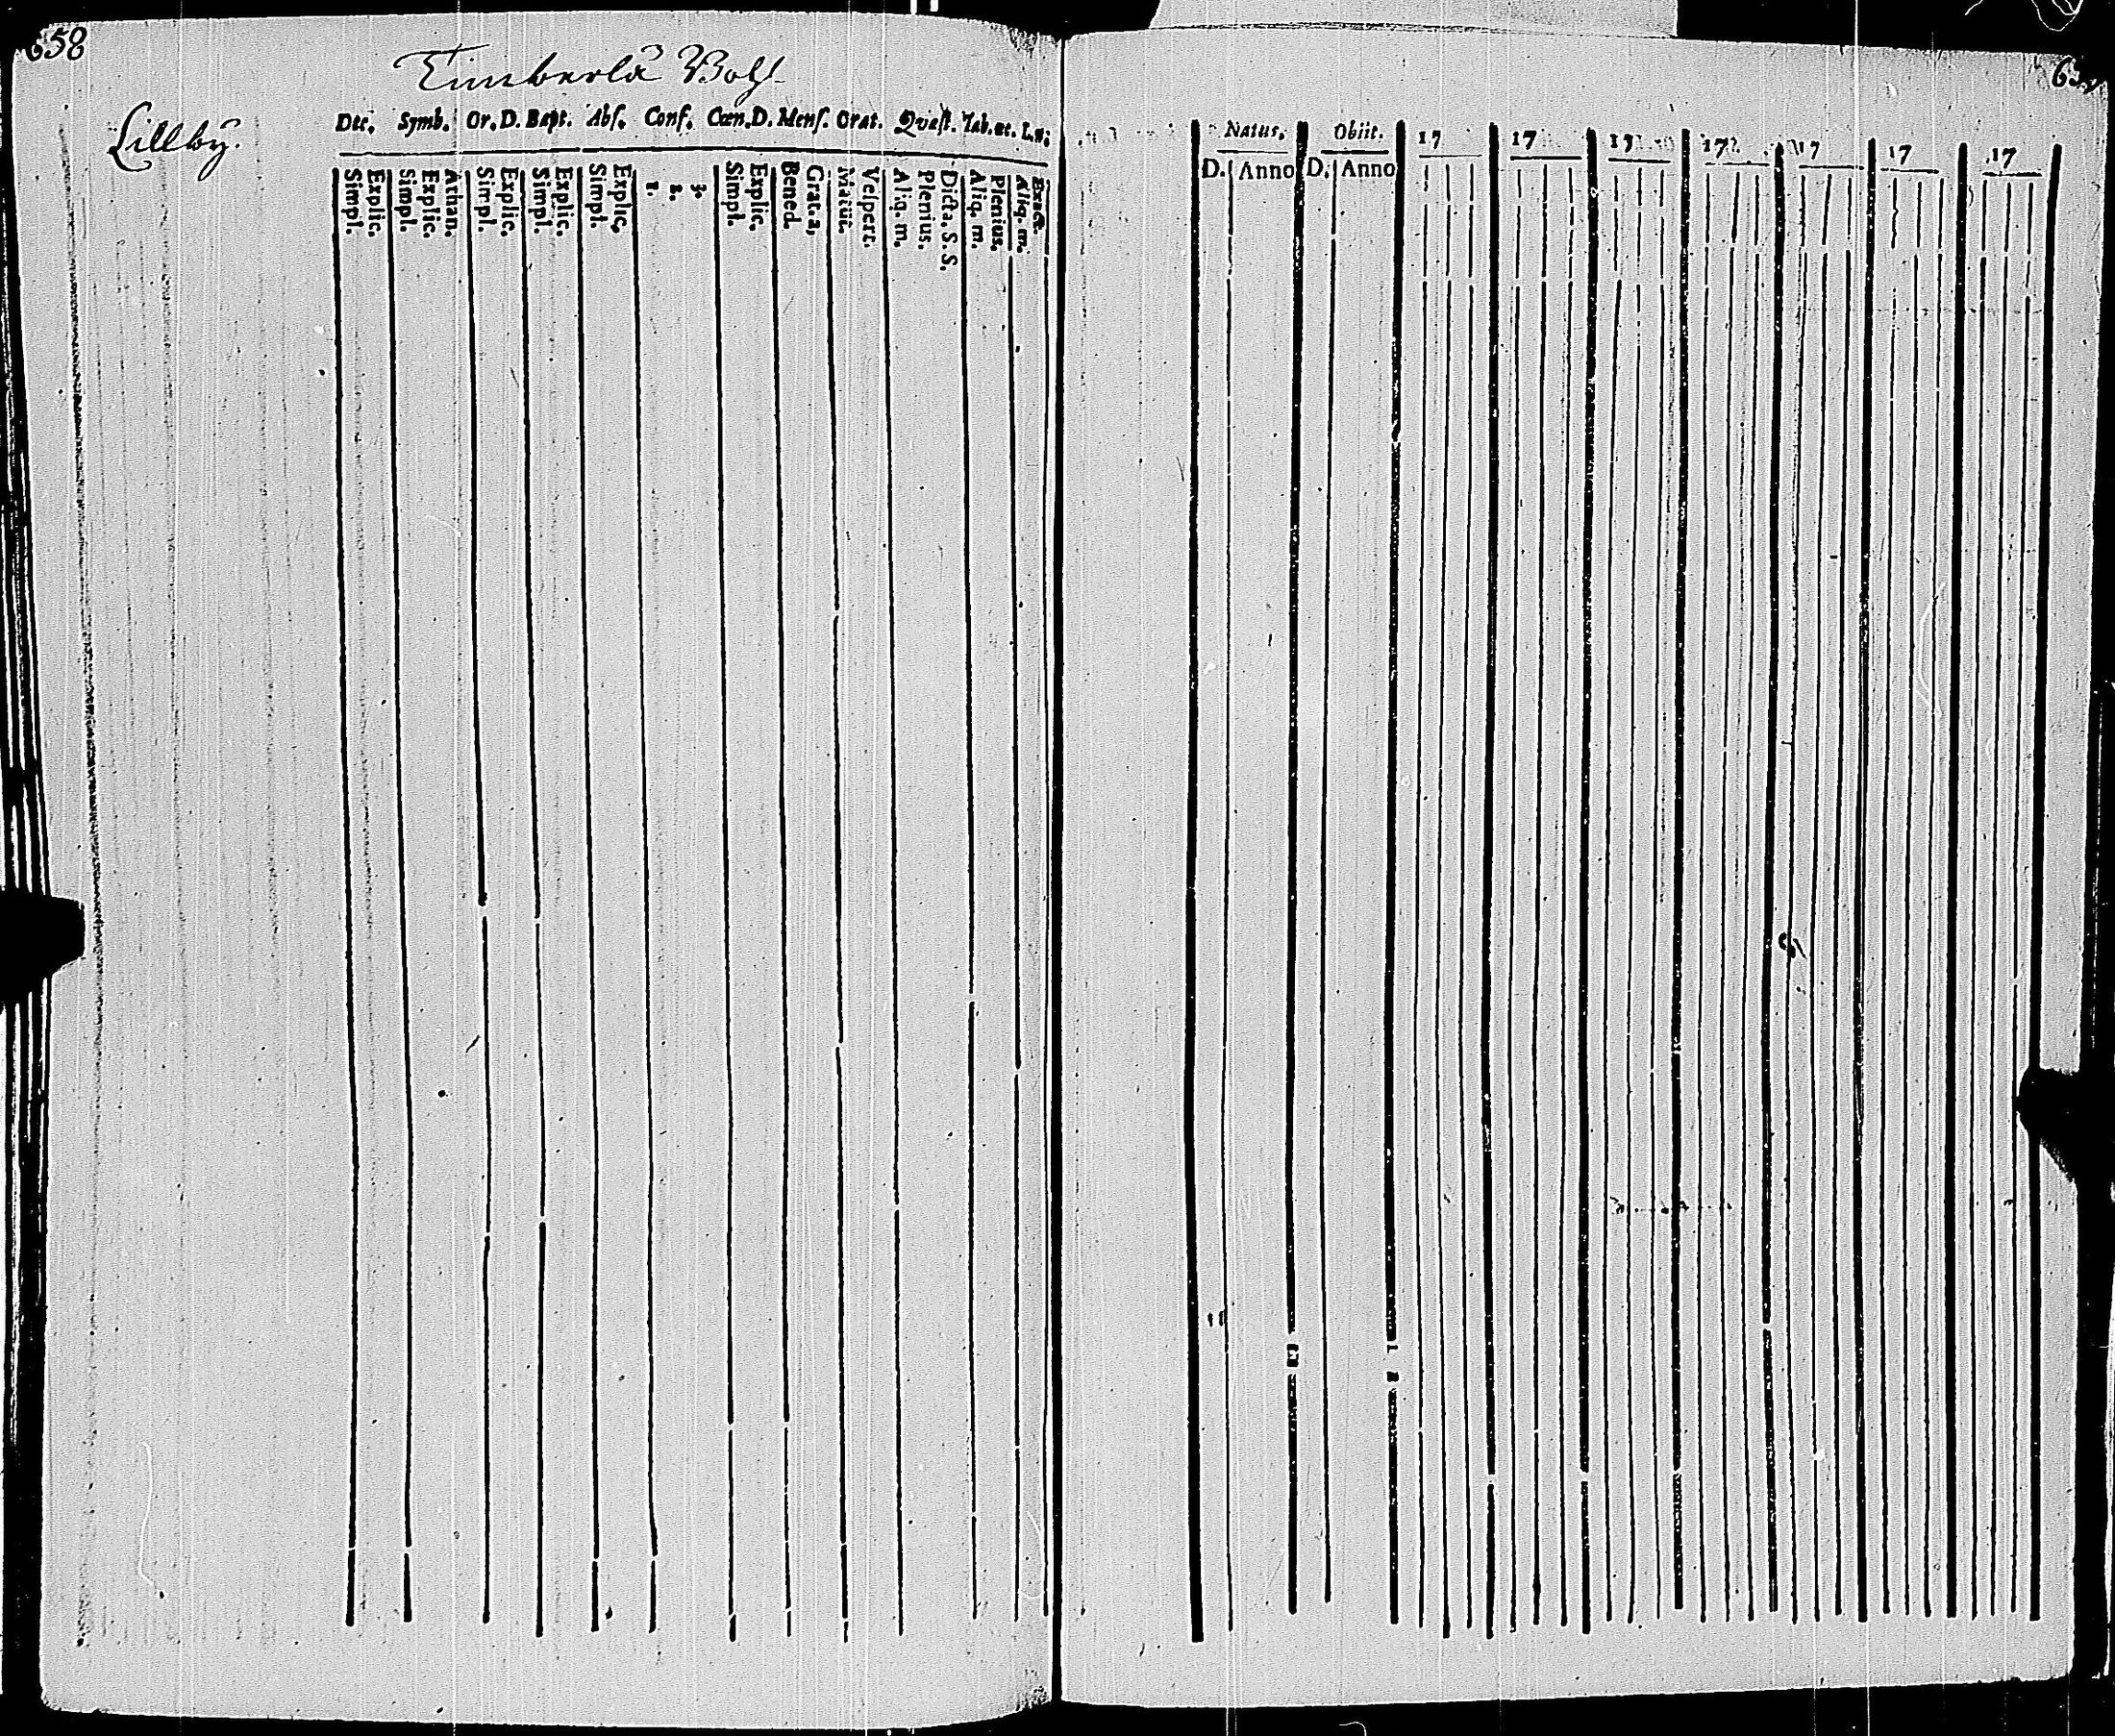 658
Timberla Bohl
Lillby.
Dec. Symb. Or. D. Bapt. Abs. Conf. Cœn. D. Mens. Orat. Quæst. Tab. œc. L. n.
Simpl. Explic. Simpl. Explic. Athan. Simpl. Explic. Simpl. Explic. Simpl. Explic. 1. 2. 3. Simpl. Explic. Bened. Grat. a. Matut. Vespert. Aliq. m. Plenius. Dicta. S. S. Aliq. m. Plenius. Aliq. m. Exacte.
Natus. Obiit. 17 17 17 17 17 17 17
D. Anno D. Anno